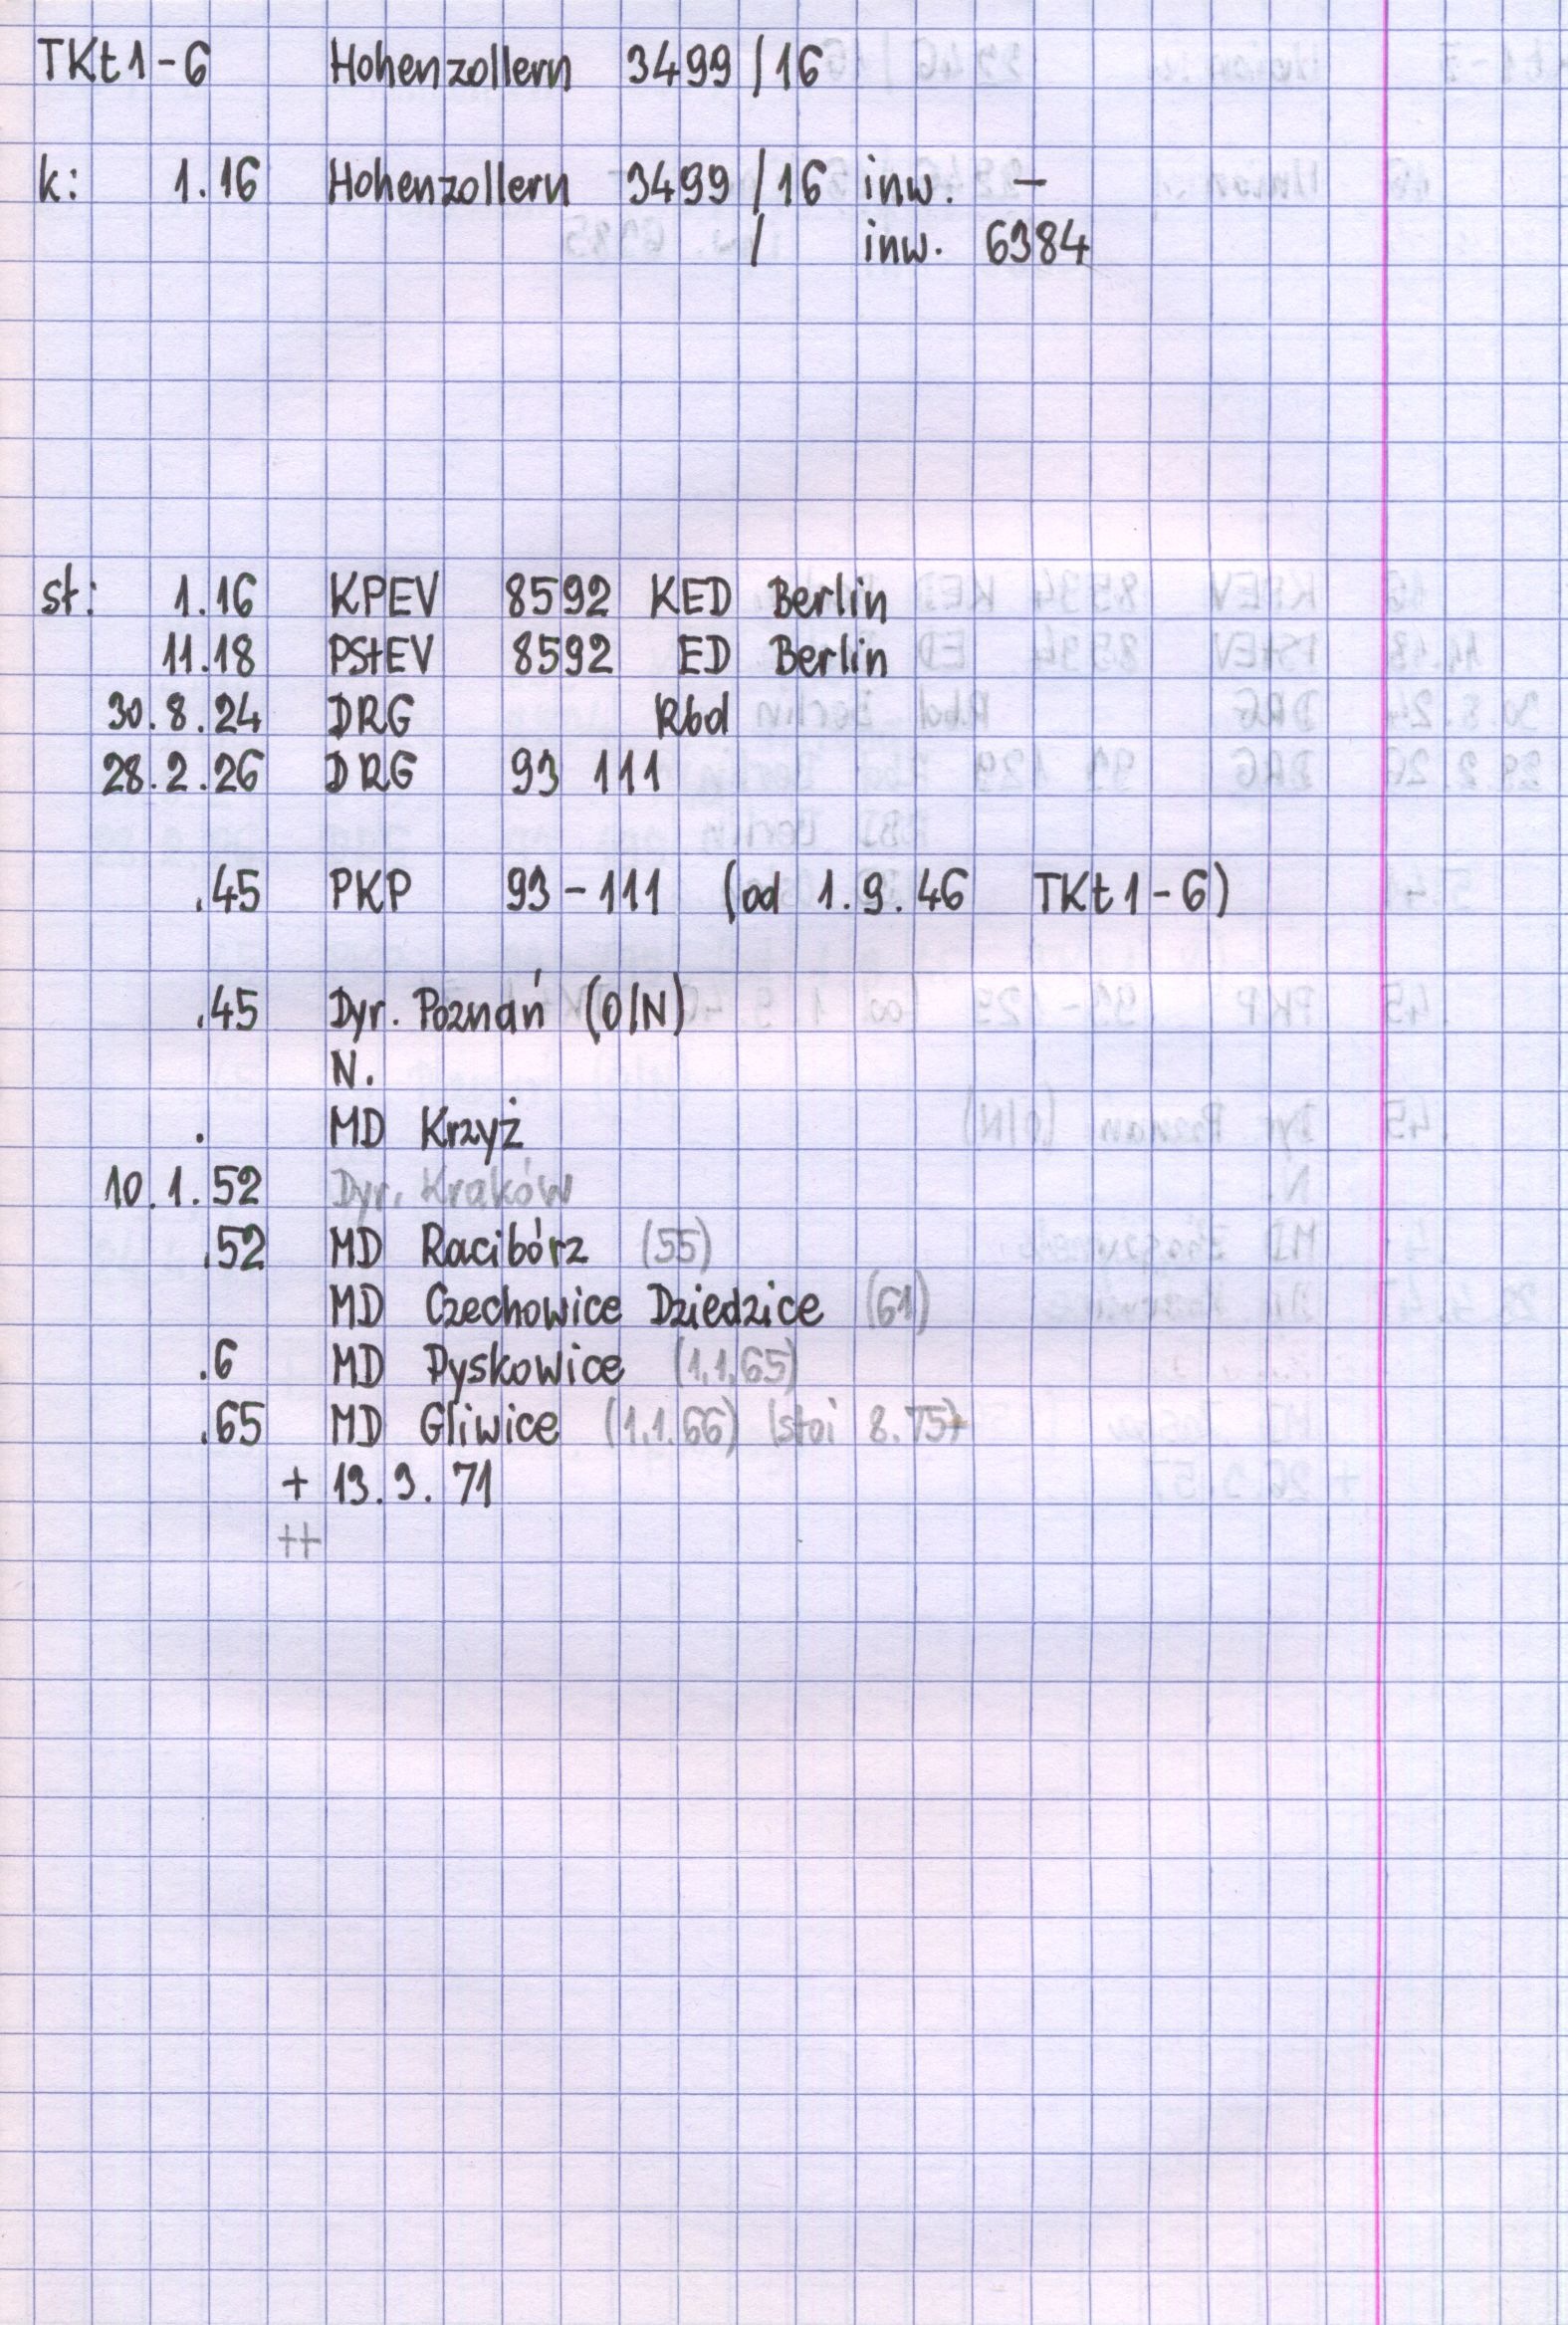 TKt1-6 Hohenzollern 3499/16
k: 1.16 Hohenzollern 3499/16 inw. -
/ inw. 6384
st: 1.16 KPEV 8592 KED Berlin
11.18 PStEV 8592 ED Berlin
30.8.24 DRG Rbd
28.2.26 DRG 93 111
.45 PKP 93-111 (od 1.9.46 TKt1-6)
.45 Dyr. Poznań (O/N)
N.
. MD Krzyż
10.1.52 Dyr. Kraków
.52 MD Racibórz (55)
MD Czechowice Dziedzice (61)
.6 MD Pyskowice (1.1.65)
.65 MD Gliwice (1.1.66) (stoi 8.75)
+ 13.3.71
++